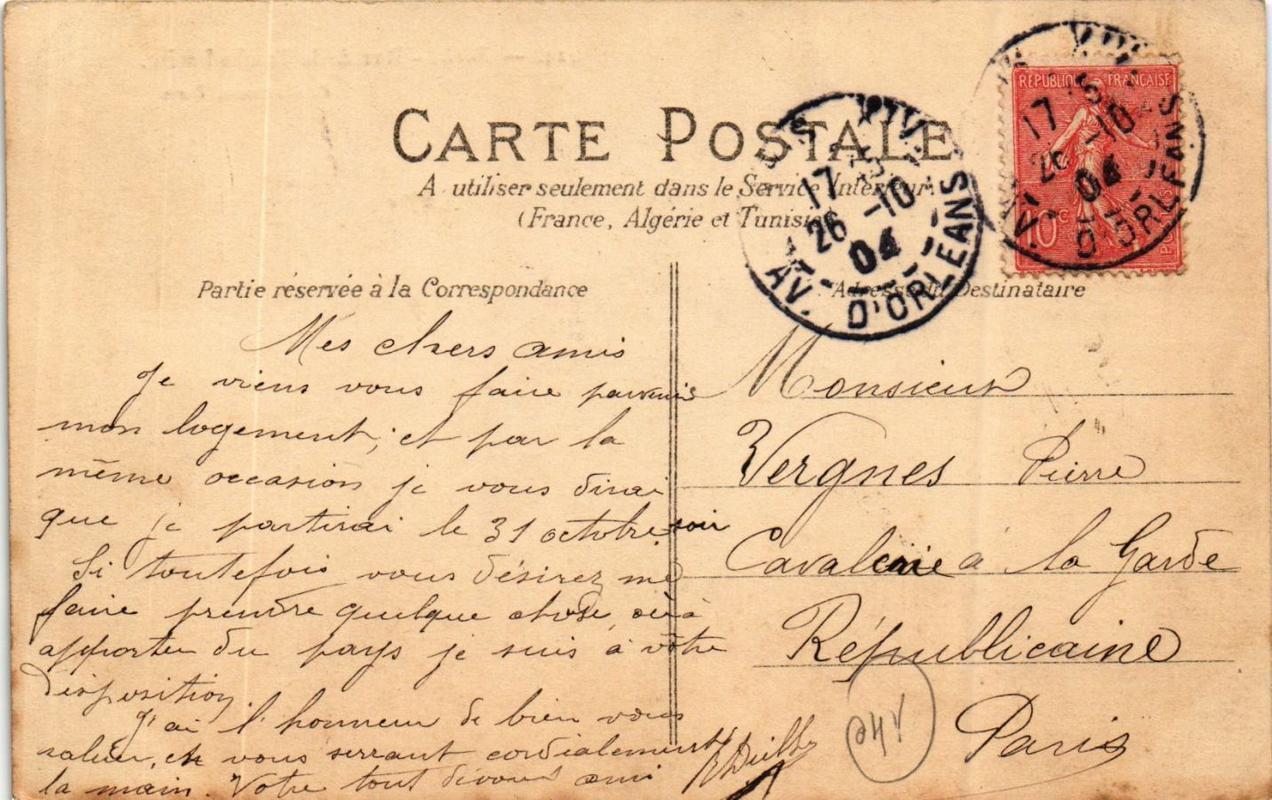 CARTE POSTALE
A utiliser seulement dans le Service Intérieur
(France, Algérie et Tunisie
Partie réservée à la Correspondance
Mes chers amis
Je viens vous faire parvenir
mon logement, et par la
même occasion je vous dirai
que je partirai le 31 octobre soir
Si toutefois vous désirez me
faire prendre quelque chose, ou à
apporter du pays je suis à vôtre
disposition
J'ai l'honneur de bien vous
saluer, en vous serrant cordialement
la main. Votre tout dévoué ami
Adresse du Destinataire
Monsieur
Vergnes Pierre
Cavalerie à la Garde
Républicaine
Paris
17
26 -10
04
AV. D'ORLEANS
REPUBLIQUE FRANÇAISE
10c
17
26 -10
04
AV. D'ORLEANS